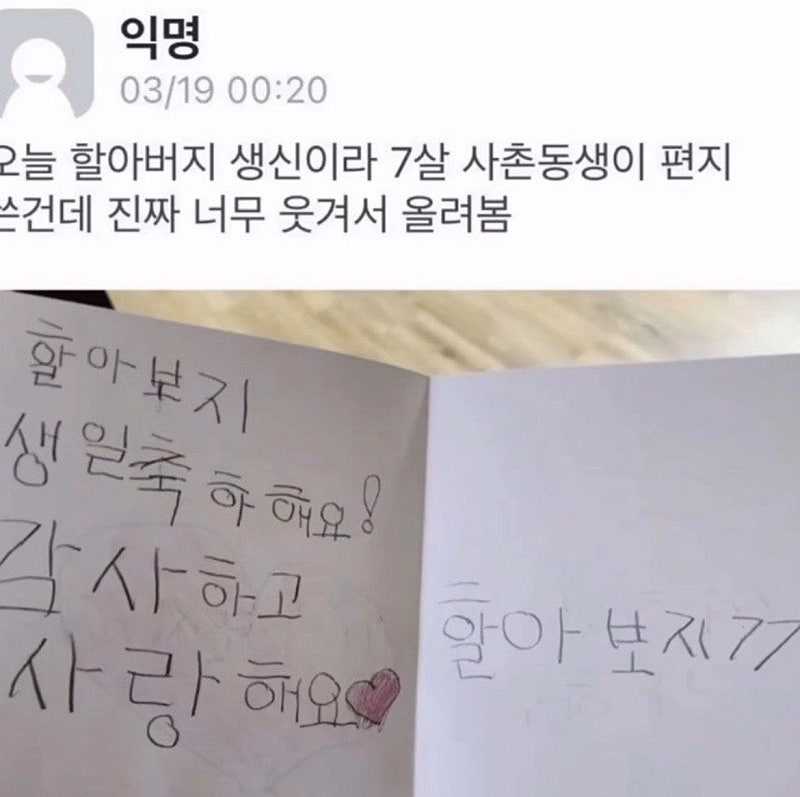 익명
03/19 00:20
오늘 할아버지 생신이라 7살 사촌동생이 편지
쓴건데 진짜 너무 웃겨서 올려봄
할아보지
생일축하해요!
감사하고
사랑해요♥
할아보지77